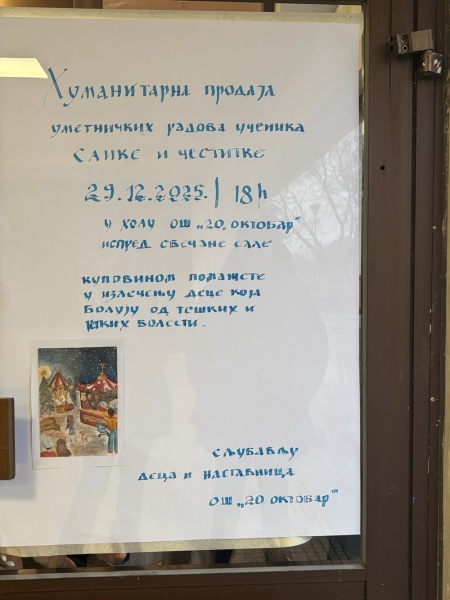 Хуманитарна продаја
уметничких радова ученика
Слике и честитке
29.12.2025. | 18 h
у холу ОШ „20. октобар"
испред свечане сале
куповином помажете
у излечењу деце која
болују од тешких и
ретких болести.
С љубављу
деца и наставница
ОШ „20 октобар"